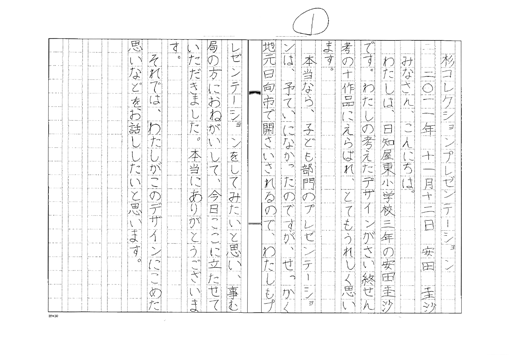 ①
杉コレクションプレゼンテーション
二〇一一年 十一月十二日 安田 圭沙
みなさん、こんにちは。
わたしは、日知屋東小学校三年の安田圭沙
です。わたしの考えたデザインがさい終せん
考の十作品にえらばれ、とてもうれしく思い
ます。
本当なら、子ども部門のプレゼンテーショ
ンは、予ていになかったのですが、せっかく
地元日向市で開さいされるので、わたしもプ
レゼンテーションをしてみたいと思い、事む
局の方におねがいして、今日ここに立たせて
いただきました。本当にありがとうございま
す。
それでは、わたしがこのデザインにこめた
思いなどをお話ししたいと思います。